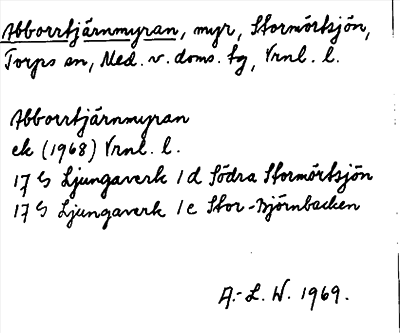 Abborrtjärnmyran, myr, Stormörtsjön,
Torps sn, Med. v. doms. tg, Vrnl. l.
Abborrtjärnmyran
ek (1968) Vrnl. l.
17 G Ljungaverk 1 d Södra Stormörtsjön
17 G Ljungaverk 1 e Stor-Björnbacken
A.-L. W. 1969.